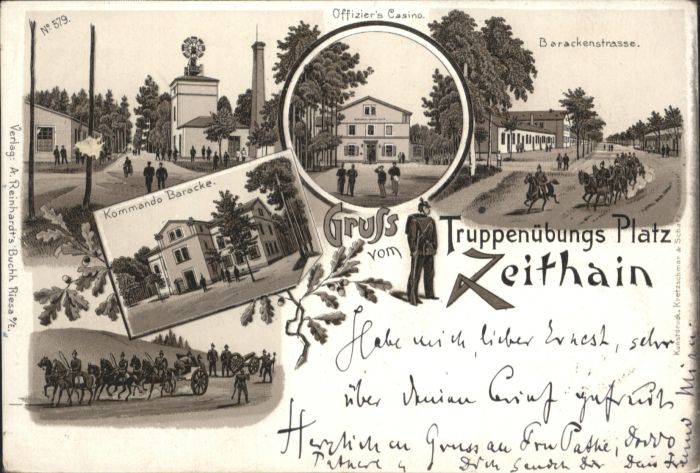 No 579.
Offizier's Casino.
Barackenstrasse.
Kommando Baracke.
Gruss vom Truppenübungs Platz
Zeithain
Verlag: A. Reinhardt's Buchh. Riesa a/E.
Kunstdruck. Kretzschmar & Schatz
Habe mich, lieber Ernst, sehr
über deinen Brief gefreut.
Herzlichen Gruss an Frau Pathe,